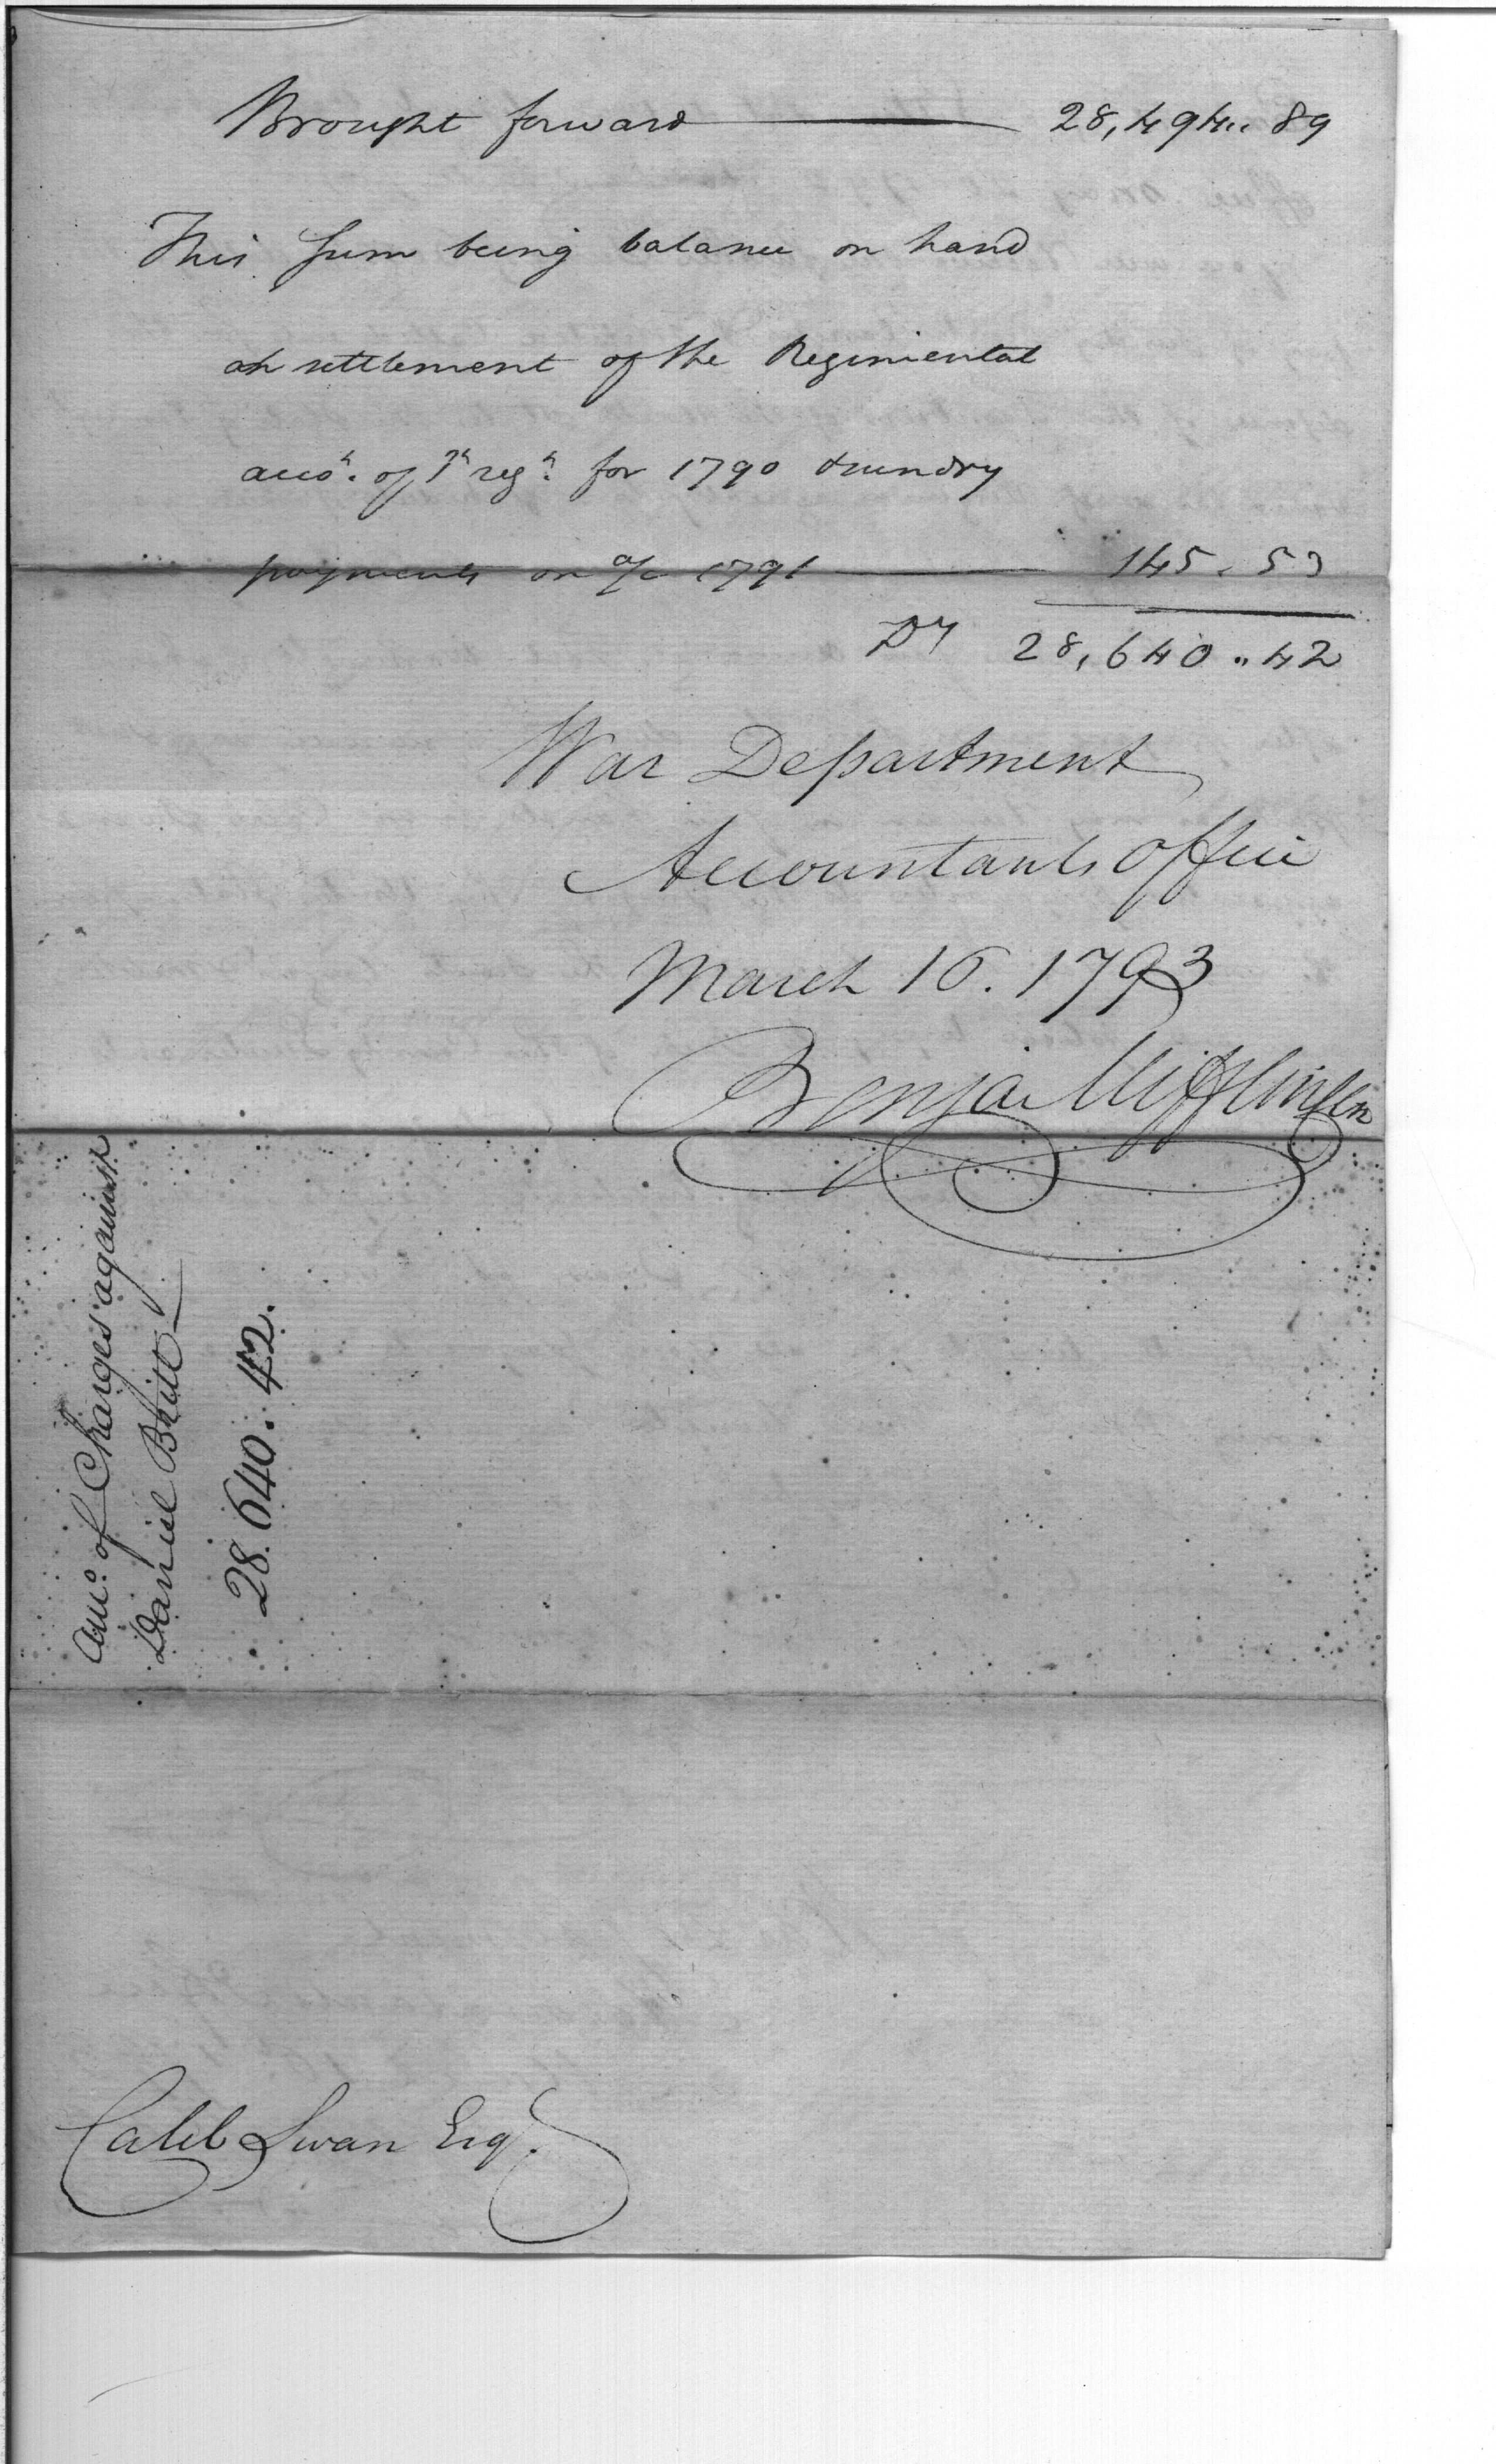 Brought forward 28,494.. 89
This sum being balance on hand
on settlement of the Regimental
acco.t of 1.t reg.t for 1790 & sundry
payments on a/c 1791 145. 53
D.s 28,640.. 42
War Department
Accountants Office
March 16. 1793
Benja Mifflin
acc.o of Charges against
Daniel Britt
28.640.42.
Caleb Swan Esq.